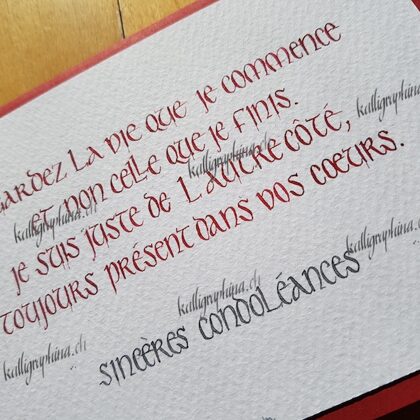 GARDEZ LA VIE QUE JE COMMENCE
ET NON CELLE QUE JE FINIS.
JE SUIS JUSTE DE L'AUTRE CÔTÉ,
TOUJOURS PRÉSENT DANS VOS COEURS.
SINCÈRES CONDOLÉANCES
kalligraphina.ch
kalligraphina.ch
kalligraphina
kalligraphina.ch
kalligraphina.ch
kalligraphina.ch